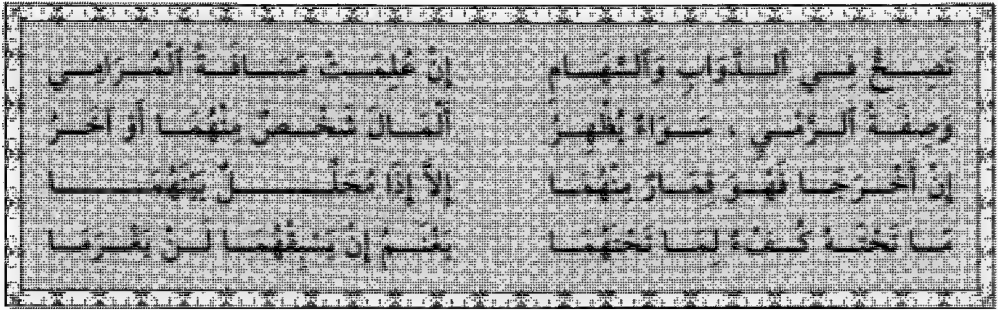 تَصِحُّ فِي ٱلدَّوَابِ وَٱلسِّهَامِ إِنْ عُلِمَتْ مَسَافَةُ ٱلْمَرَامِي
وَصِفَةُ ٱلرَّمْيِ ، سَوَاءٌ يُظْهِرُ ٱلْمَالَ شَخْصٌ مِنْهُمَا أَوْ آخَرُ
إِنْ أَخْرَجَا فَهْوَ قِمَارٌ مِنْهُمَا إِلاَّ إِذَا مُحَلِّلٌ بَيْنَهُمَا
مَا تَحْتَهُ كُفْءٌ لِمَا تَحْتَهُمَا يَغْنَمُ إِنْ يَسْبِقْهُمَا لَنْ يَغْرَمَا